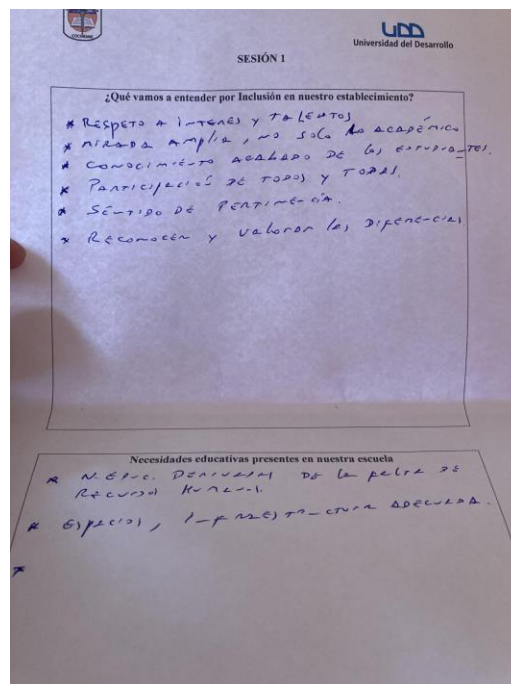 COCHRANE
UDD
Universidad del Desarrollo
SESIÓN 1
¿Qué vamos a entender por Inclusión en nuestro establecimiento?
* RESPETO A INTERÉS Y TALENTOS
* MIRADA AMPLIA, NO SOLO LO ACADÉMICO
* CONOCIMIENTO ACABADO DE LOS ESTUDIANTES.
* PARTICIPACIÓN DE TODOS Y TODAS.
* SENTIDO DE PERTINENCIA.
* RECONOCER Y VALORAR LAS DIFERENCIAS
Necesidades educativas presentes en nuestra escuela
* N. EDUC. DERIVADAS DE LA FALTA DE
RECURSOS HUMANOS.
* ESPACIOS, INFRAESTRUCTURA ADECUADA.
*